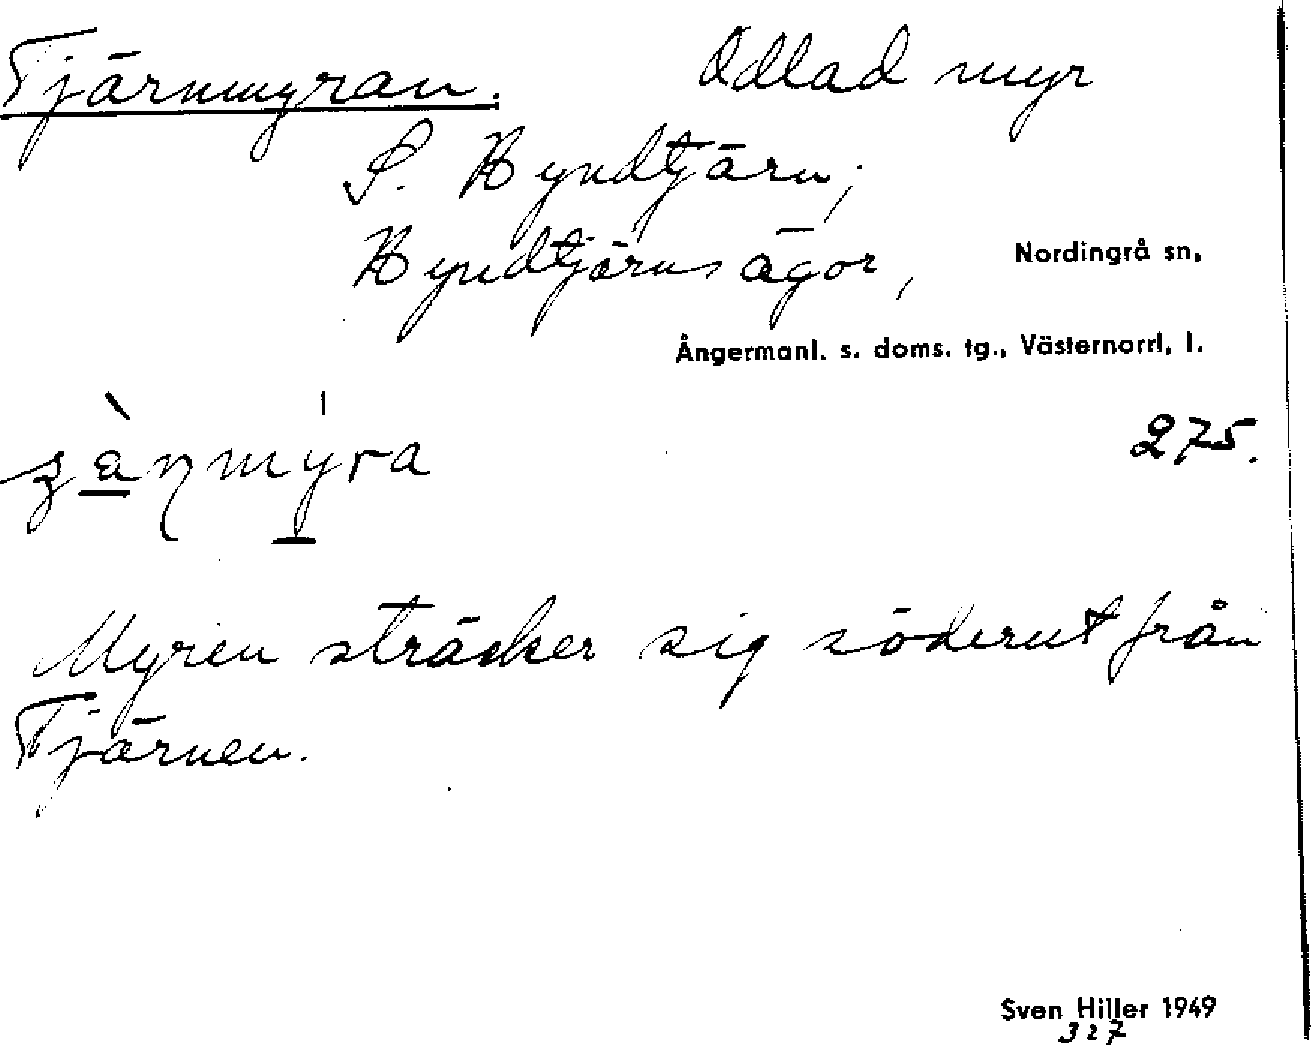 Tjärnmyran. Odlad myr
S. Hyndtjärn,
Hyndtjärns ägor, Nordingrå sn,
Ångermanl. s. doms. tg., Västernorrl. l.
275.
Myren sträcker sig söderut från
Tjärnen.
Sven Hiller 1949
327